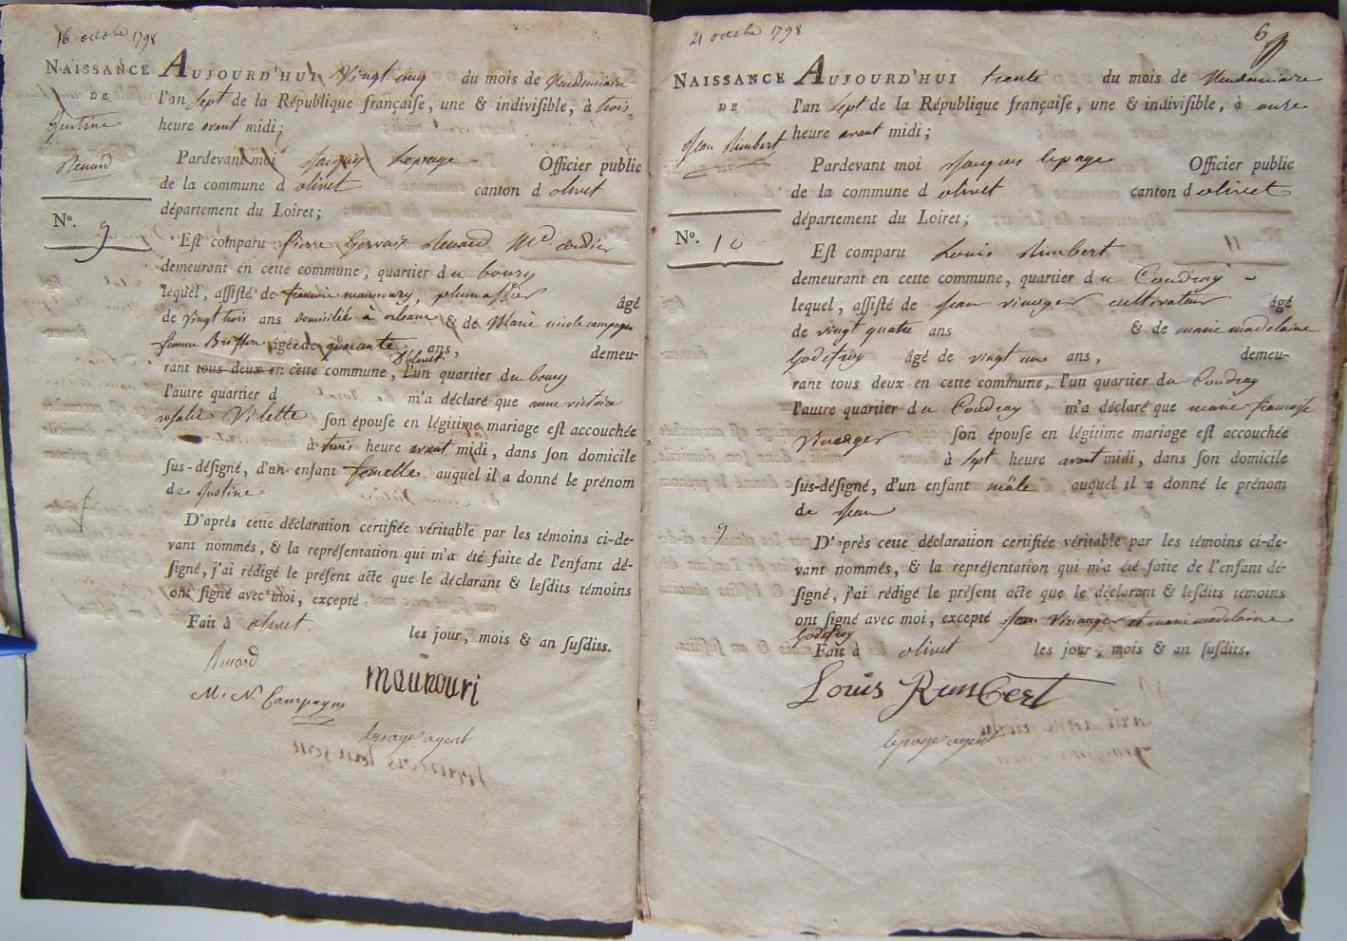 16 octobre 1798
NAISSANCE
DE
Justine
Renard
N°. 9
AUJOURD'HUI Vingt cinq du mois de Vendemiaire
l'an sept de la République françaiſe, une & indiviſible, à trois
heure avant midi;
Pardevant moi Jacques Lepage Officier public
de la commune d olivet canton d olivet
département du Loiret;
Eſt comparu Pierre Gervais Renard Md
demeurant en cette commune, quartier du bourg
lequel, aſſiſté de francois maunoury, plumassier âgé
de vingt trois ans domicilié a orleans & de Marie nicole campagne
femme âgée de quarante ans, demeu-
rant tous deux en cette commune, d'olivet l'un quartier du bourg
l'autre quartier d m'a déclaré que anne victoire
rosalie Violette ſon épouſe en légitime mariage eſt accouchée
à trois heure avant midi, dans ſon domicile
ſus-déſigné, d'un enfant femelle auquel il a donné le prénom
de Justine
D'après cette déclaration certifiée véritable par les témoins ci-de-
vant nommés, & la repréſentation qui m'a été faite de l'enfant dé-
ſigné, j'ai rédigé le préſent acte que le déclarant & leſdits témoins
ont ſigné avec moi, excepté
Fait à olivet les jour, mois & an ſuſdits.
Renard
M. N. Campagne
maunouri
lepage agent
21 octobre 1798
6
NAISSANCE
DE
Jean Rimbert
N°. 10
AUJOURD'HUI trente du mois de Vendemiaire
l'an sept de la République françaiſe, une & indiviſible, à onze
heure avant midi;
Pardevant moi Jacques lepage Officier public
de la commune d olivet canton d olivet
département du Loiret;
Eſt comparu Louis Rimbert
demeurant en cette commune, quartier du Coudray
lequel, aſſiſté de Jean vineger cultivateur âgé
de vingt quatre ans & de marie madelaine
Godefroy âgé de vingt un ans, demeu-
rant tous deux en cette commune, l'un quartier du Coudray
l'autre quartier du Coudray m'a déclaré que marie francoise
ſon épouſe en légitime mariage eſt accouchée
à sept heure avant midi, dans ſon domicile
ſus-déſigné, d'un enfant mâle auquel il a donné le prénom
de Jean
D'après cette déclaration certifiée véritable par les témoins ci-de-
vant nommés, & la repréſentation qui m'a été faite de l'enfant dé-
ſigné, j'ai rédigé le préſent acte que le déclarant & leſdits témoins
ont ſigné avec moi, excepté Jean et marie madelaine
Godefroy
Fait à olivet les jour, mois & an ſuſdits.
Louis Rimbert
lepage agent